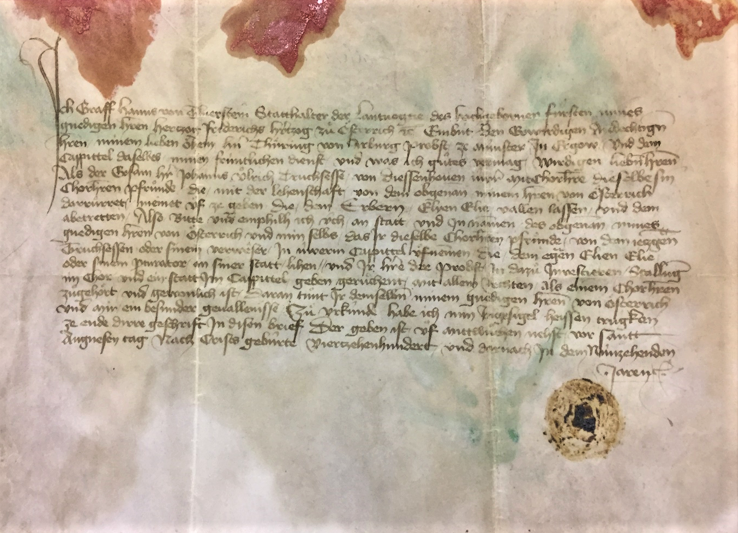 Ich Graff Hanns von Tierstein Statthalter der Lantvogtie des hochgebornen fursten mines
gnedigen hren herczog Fridrichs herczog zů Osterrich etc Embut Den Erwirdigen Andechtign
hren minem lieben Oheim hrn Thuring von Arburg Probst ze munster In Ergow Und dem
Cappittel daselbs minen fruntlichen dienst und was ich gůtes vermag wirdigen lieben hren
Als der Gesam hr Johanns Ulrich Trucksesse von Diessenhouen uwer mitChorhrre dieselbe sin
Chorhren pfrunde die mit der lehenschaft von dem obgenan minem hren von Osterrich
darrurret meinet uf ze geben die dem Erbern Elyen Elie vallen lassen und dem
abetretten Also Bitte und emphilh ich uch an statt und In namen des obgenan mines
gnedigen hren von Osterrich und min selbs das Ir dieselbe Chorhren pfrunde von dem ieczgen
Trucksessen oder sinem verweser In uwerm Cappittel ufnemen die dem egen Elien Elie
oder sinem an siner statt lihen und Ir hrre der Probst In darzu Investieren Stallung
im Chor und ein statt Im Cappittel geben geruchent mit allem rechten als einem Chorhren
zugehört und gewonlich ist Daran tůnt Ir demselben minem gnedigen hren von Osterrich
und mir ein besunder geuallenisse Zů Urkunde habe ich min Ingesigel heissen trugken
ze ende dirre geschrift In disen brief Der geben ist uf mittwuchen nehst vor sant
Agnesen tag Nach Crists geburte Vierczehenhundert und darnach In dem Nunczehenden
Jaren